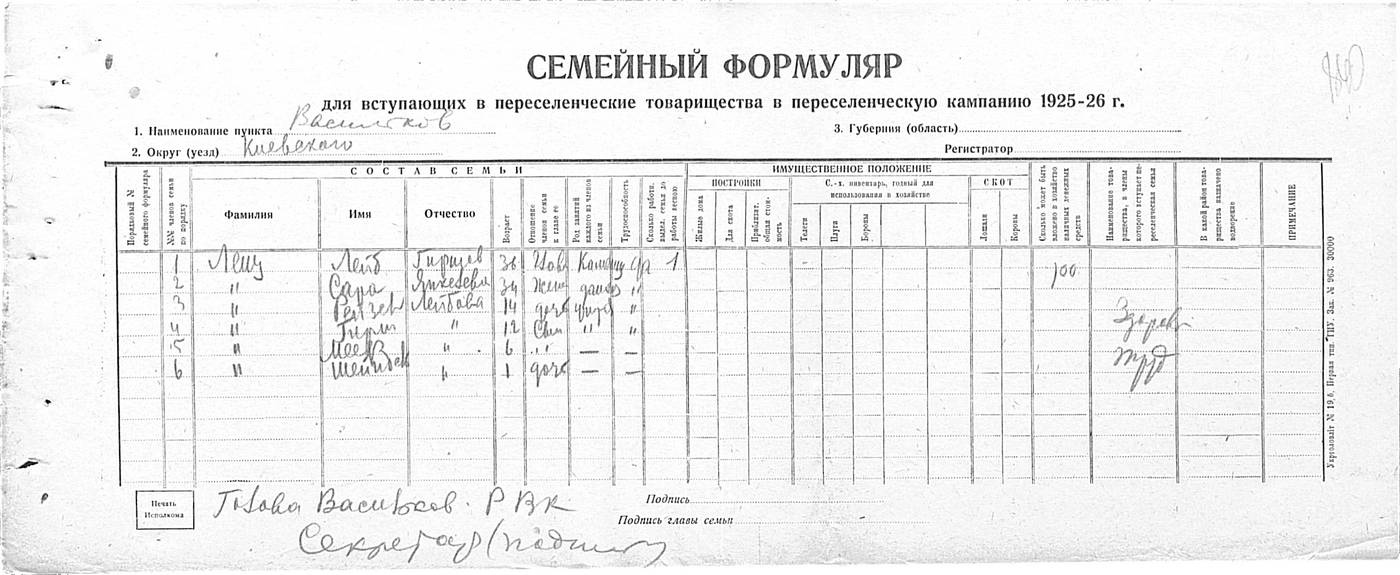 СЕМЕЙНЫЙ ФОРМУЛЯР
для вступающих в переселенческие товарищества в переселенческую кампанию 1925-26 г.
1. Наименование пункта Васильков
3. Губерния (область)
2. Округ (уезд) Киевского
Регистратор
Порядковый № семейного формуляра
№№ членов семьи по порядку
СОСТАВ СЕМЬИ
Фамилия
Имя
Отчество
Возраст
Отношение членов семьи к главе ее
Род занятий каждого из членов семьи
Трудоспособность
Сколько работн. выдел. семья до работы весною
ИМУЩЕСТВЕННОЕ ПОЛОЖЕНИЕ
ПОСТРОЙКИ
Жилые дома
Для скота
Приблизит. общая стоимость
С.-х. инвентарь, годный для использования в хозяйстве
Телеги
Плуги
Бороны
СКОТ
Лошади
Коровы
Сколько может быть вложено в хозяйство наличных денежных средств
Наименование товарищества, в члены которого вступает переселенческая семья
В какой район товарищества назначено водворение
ПРИМЕЧАНИЕ
1 Лейб 36 1 100
2 " Сара 34 жена "
3 " Лейбова 14 дочь "
4 " Герш " 12 сын " "
5 " " 6 " — —
6 " " 1 дочь — —
Труд
Печать Исполкома
Голова Васильков. РВК
Секретар (подпись)
Подпись
Подпись главы семьи
Укрголовліт № 19,6. Первая тип. ГПУ. Зак. № 963. 30000